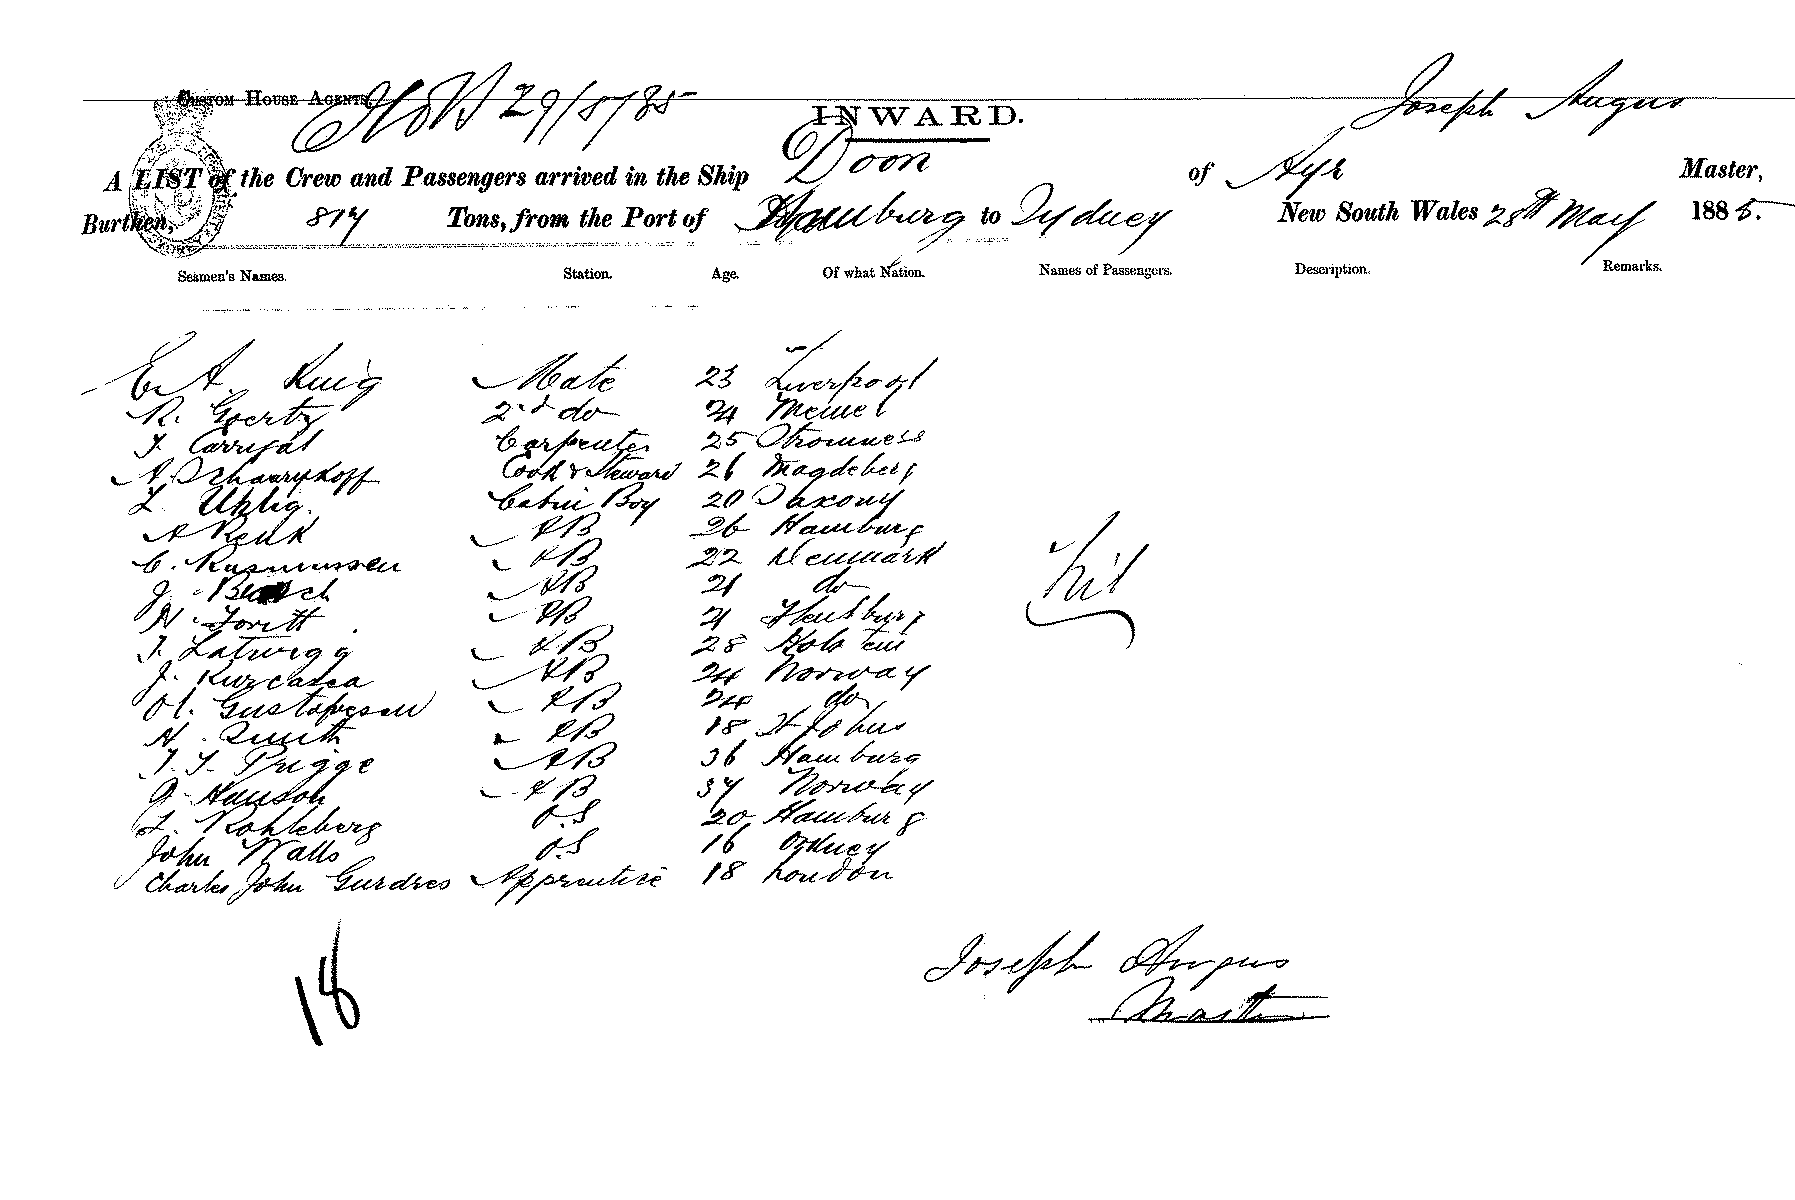 CUSTOM HOUSE AGENTS, 29/5/85
INWARD.
Joseph Angus
A LIST of the Crew and Passengers arrived in the Ship Doon of Ayr Master,
Burthen, 817 Tons, from the Port of Hamburg to Sydney New South Wales 28th May 1885.
Seamen's Names. Station. Age. Of what Nation. Names of Passengers. Description. Remarks.
E. A. Mate 23 Liverpool
R. Goertz 2nd do 24 Memel
Carrigal Carpenter 25 Stromness
A. Cook & Steward 26 Magdeberg
L. Uhlig. Cabin Boy 20 Saxony
A Renk AB 26 Hamburg
C. Rasmussen AB 22 Denmark
J. AB 21 do
H. AB 21
AB 28 Holstein
J. AB 24 Norway
Gustafvesen AB 24 do
H. Smith AB 18 St Johns
Prigge AB 36 Hamburg
Hanson AB 37 Norway
L. Kohleberg O.S 20 Hamburg
John Walls O.S 16 Orkney
Charles John Apprentice 18 London
Nil
18
Joseph Angus
Master